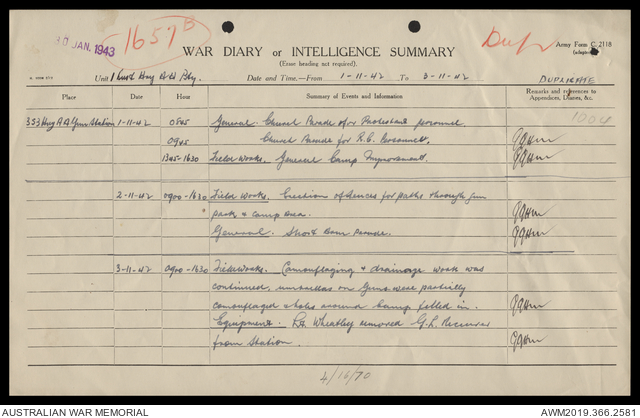 30 JAN. 1943
1657B
WAR DIARY or INTELLIGENCE SUMMARY
(Erase heading not required).
Dup
Army Form C. 2118
(adapted)
Unit 1 Aust Hvy A.A. Bty. Date and Time.—From 1-11-42 To 3-11-42
DUPLICATE
Place Date Hour Summary of Events and Information Remarks and references to Appendices, Diaries, &c.
1004
353 Hvy AA Gun Station 1-11-42 0845 General. Church Parade for Protestant personnel.
0945 Church Parade for R.C. Personnel.
1345-1630 Field Works. General Camp Improvement.
2-11-42 0900-1630 Field Works. Erection of fences for paths through gun
park & camp area.
General. Short Bomb Parade.
3-11-42 0900-1630 Field Works. Camouflaging & drainage work was
continued, umbrellas on guns were partially
camouflaged & holes around camp filled in.
Equipment. Lt. Wheatley removed G.L. Receiver
from Station.
4/16/70
AUSTRALIAN WAR MEMORIAL
AWM2019.366.2581